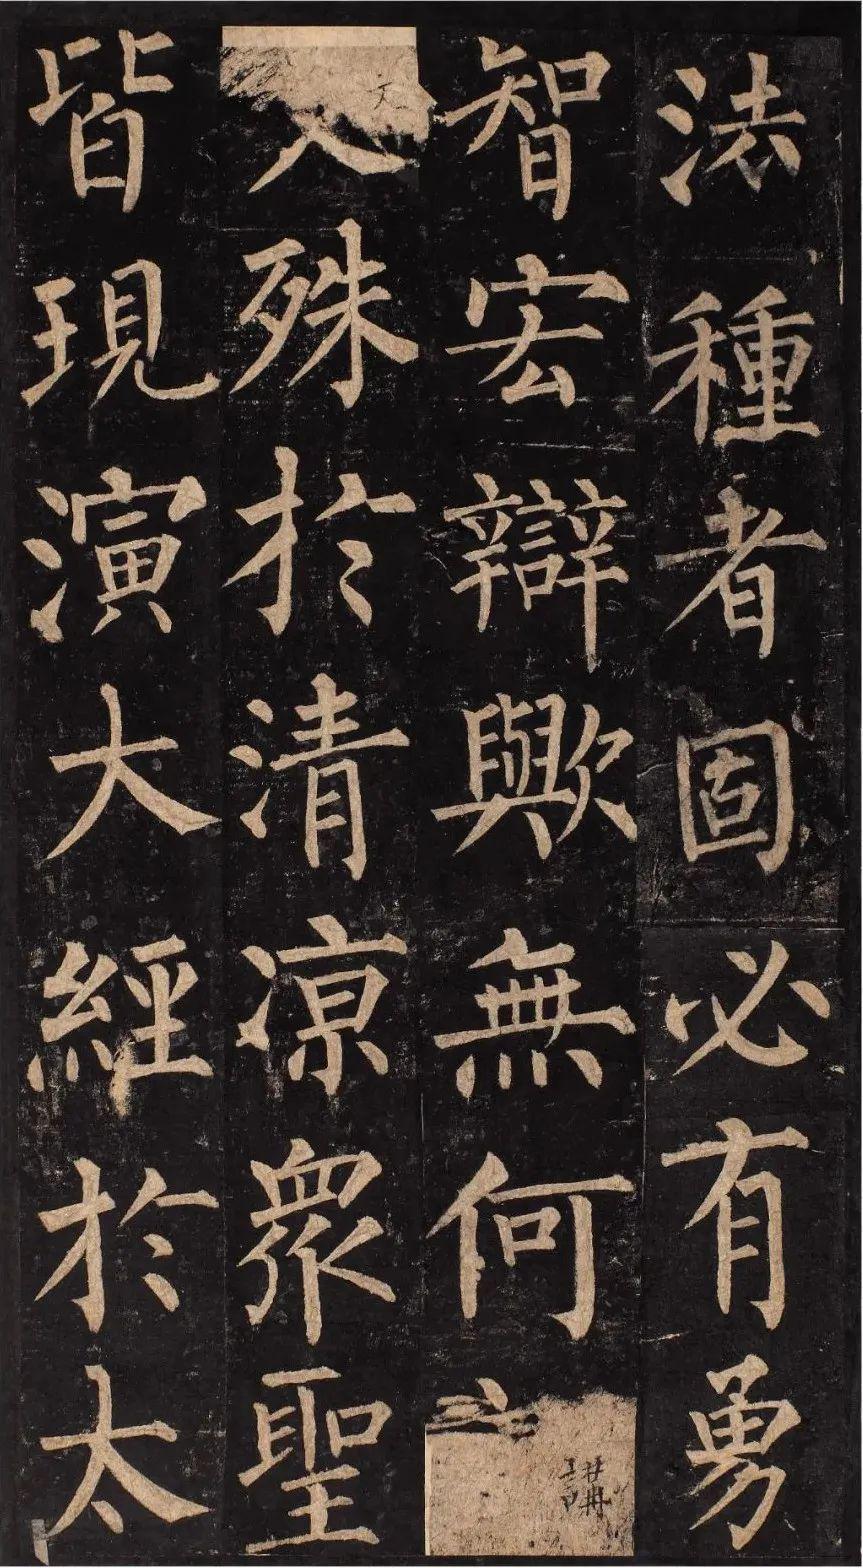 法種者固必有勇
智宏辯歟無何講
文殊於清涼眾聖
皆現演大經於太